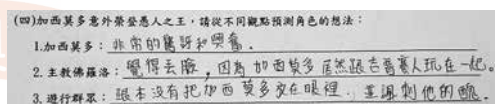 (四)加西莫多意外榮登愚人之王，請從不同觀點預測角色的想法：
1.加西莫多：非常的驚訝和興奮．
2.主教佛羅洛：覺得丟臉，因為加西莫多居然跟吉普賽人玩在一起。
3.遊行群眾：跟本沒有把加西莫多放在眼裡．並諷刺他的醜．